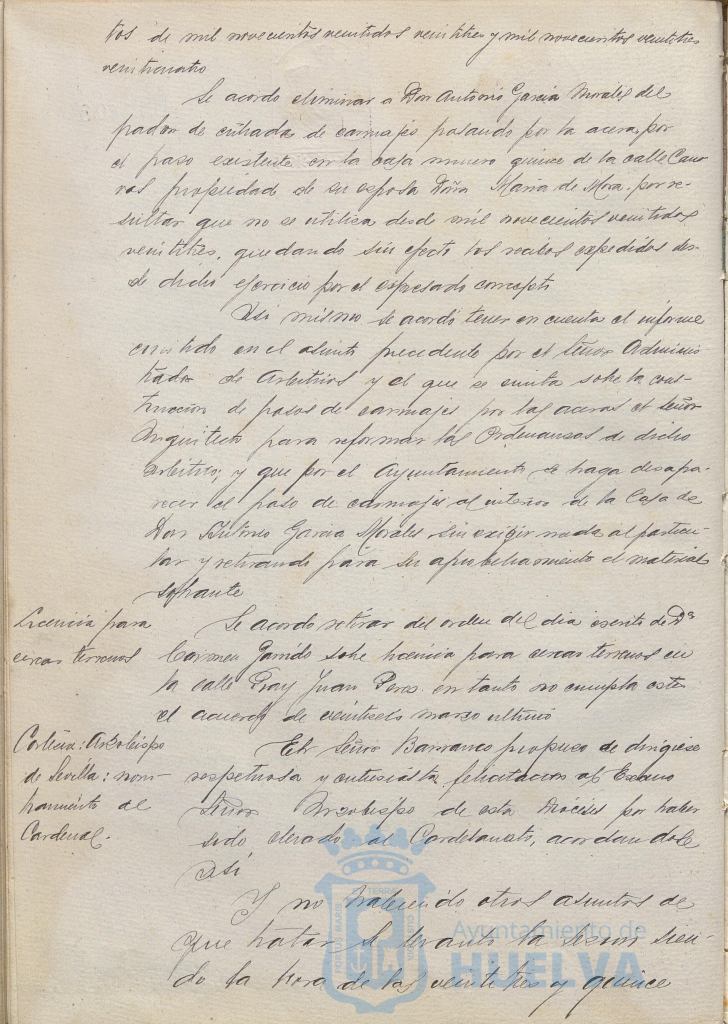 tos de mil novecientos veintidos veintitres y mil novecientos veintitres
veinticuatro
Se acordo eliminar a Don Antonio Garcia Morales del
padron de entrada de carruajes pasando por la acera, por
el paso existente en la casa numero quince de la calle Cano
vas propiedad de su esposa Doña Maria de Mora, por re-
sultar que no se utiliza desde mil novecientos veintidos
veintitres, quedando sin efecto los recibos expedidos des-
de dicho ejercicio por el expresado concepto
Asi mismo se acordó tener en cuenta el informe
emitido en el asunto precedente por el señor Adminis
trador de Arbitrios y el que se emita sobre la cons-
trucción de pasos de carruajes por las aceras el señor
Arquitecto para reformar las Ordenanzas de dicho
arbitrio; y que por el Ayuntamiento se haga desapa-
recer el paso de carruajes al interior de la Casa de
Don Antonio Garcia Morales sin exigir nada al particu-
lar y retirando para su aprovechamiento el material
sobrante
Licencia para
cercar terrenos
Se acordo retirar del orden del dia escrito de Dª
Carmen Garrido sobre licencia para cercar terrenos en
la calle Fray Juan Perez en tanto no cumpla este
el acuerdo de veintiseis marzo ultimo
Cortesia: Arzobispo
de Sevilla: nom-
bramiento de
Cardenal.
El Señor Barranco propuso de dirigiese
respetuosa y entusiasta felicitacion al Excmo
Señor Arzobispo de esta Diocesis por haber
sido elevado al Cardenalato, acordandole
asi
Y no habiendo otros asuntos de
que tratar se levantó la sesion sien-
do la hora de las veintitres y quince
PORTUS MARIS
ET TERRAE
CUSTODIA
Ayuntamiento de
HUELVA